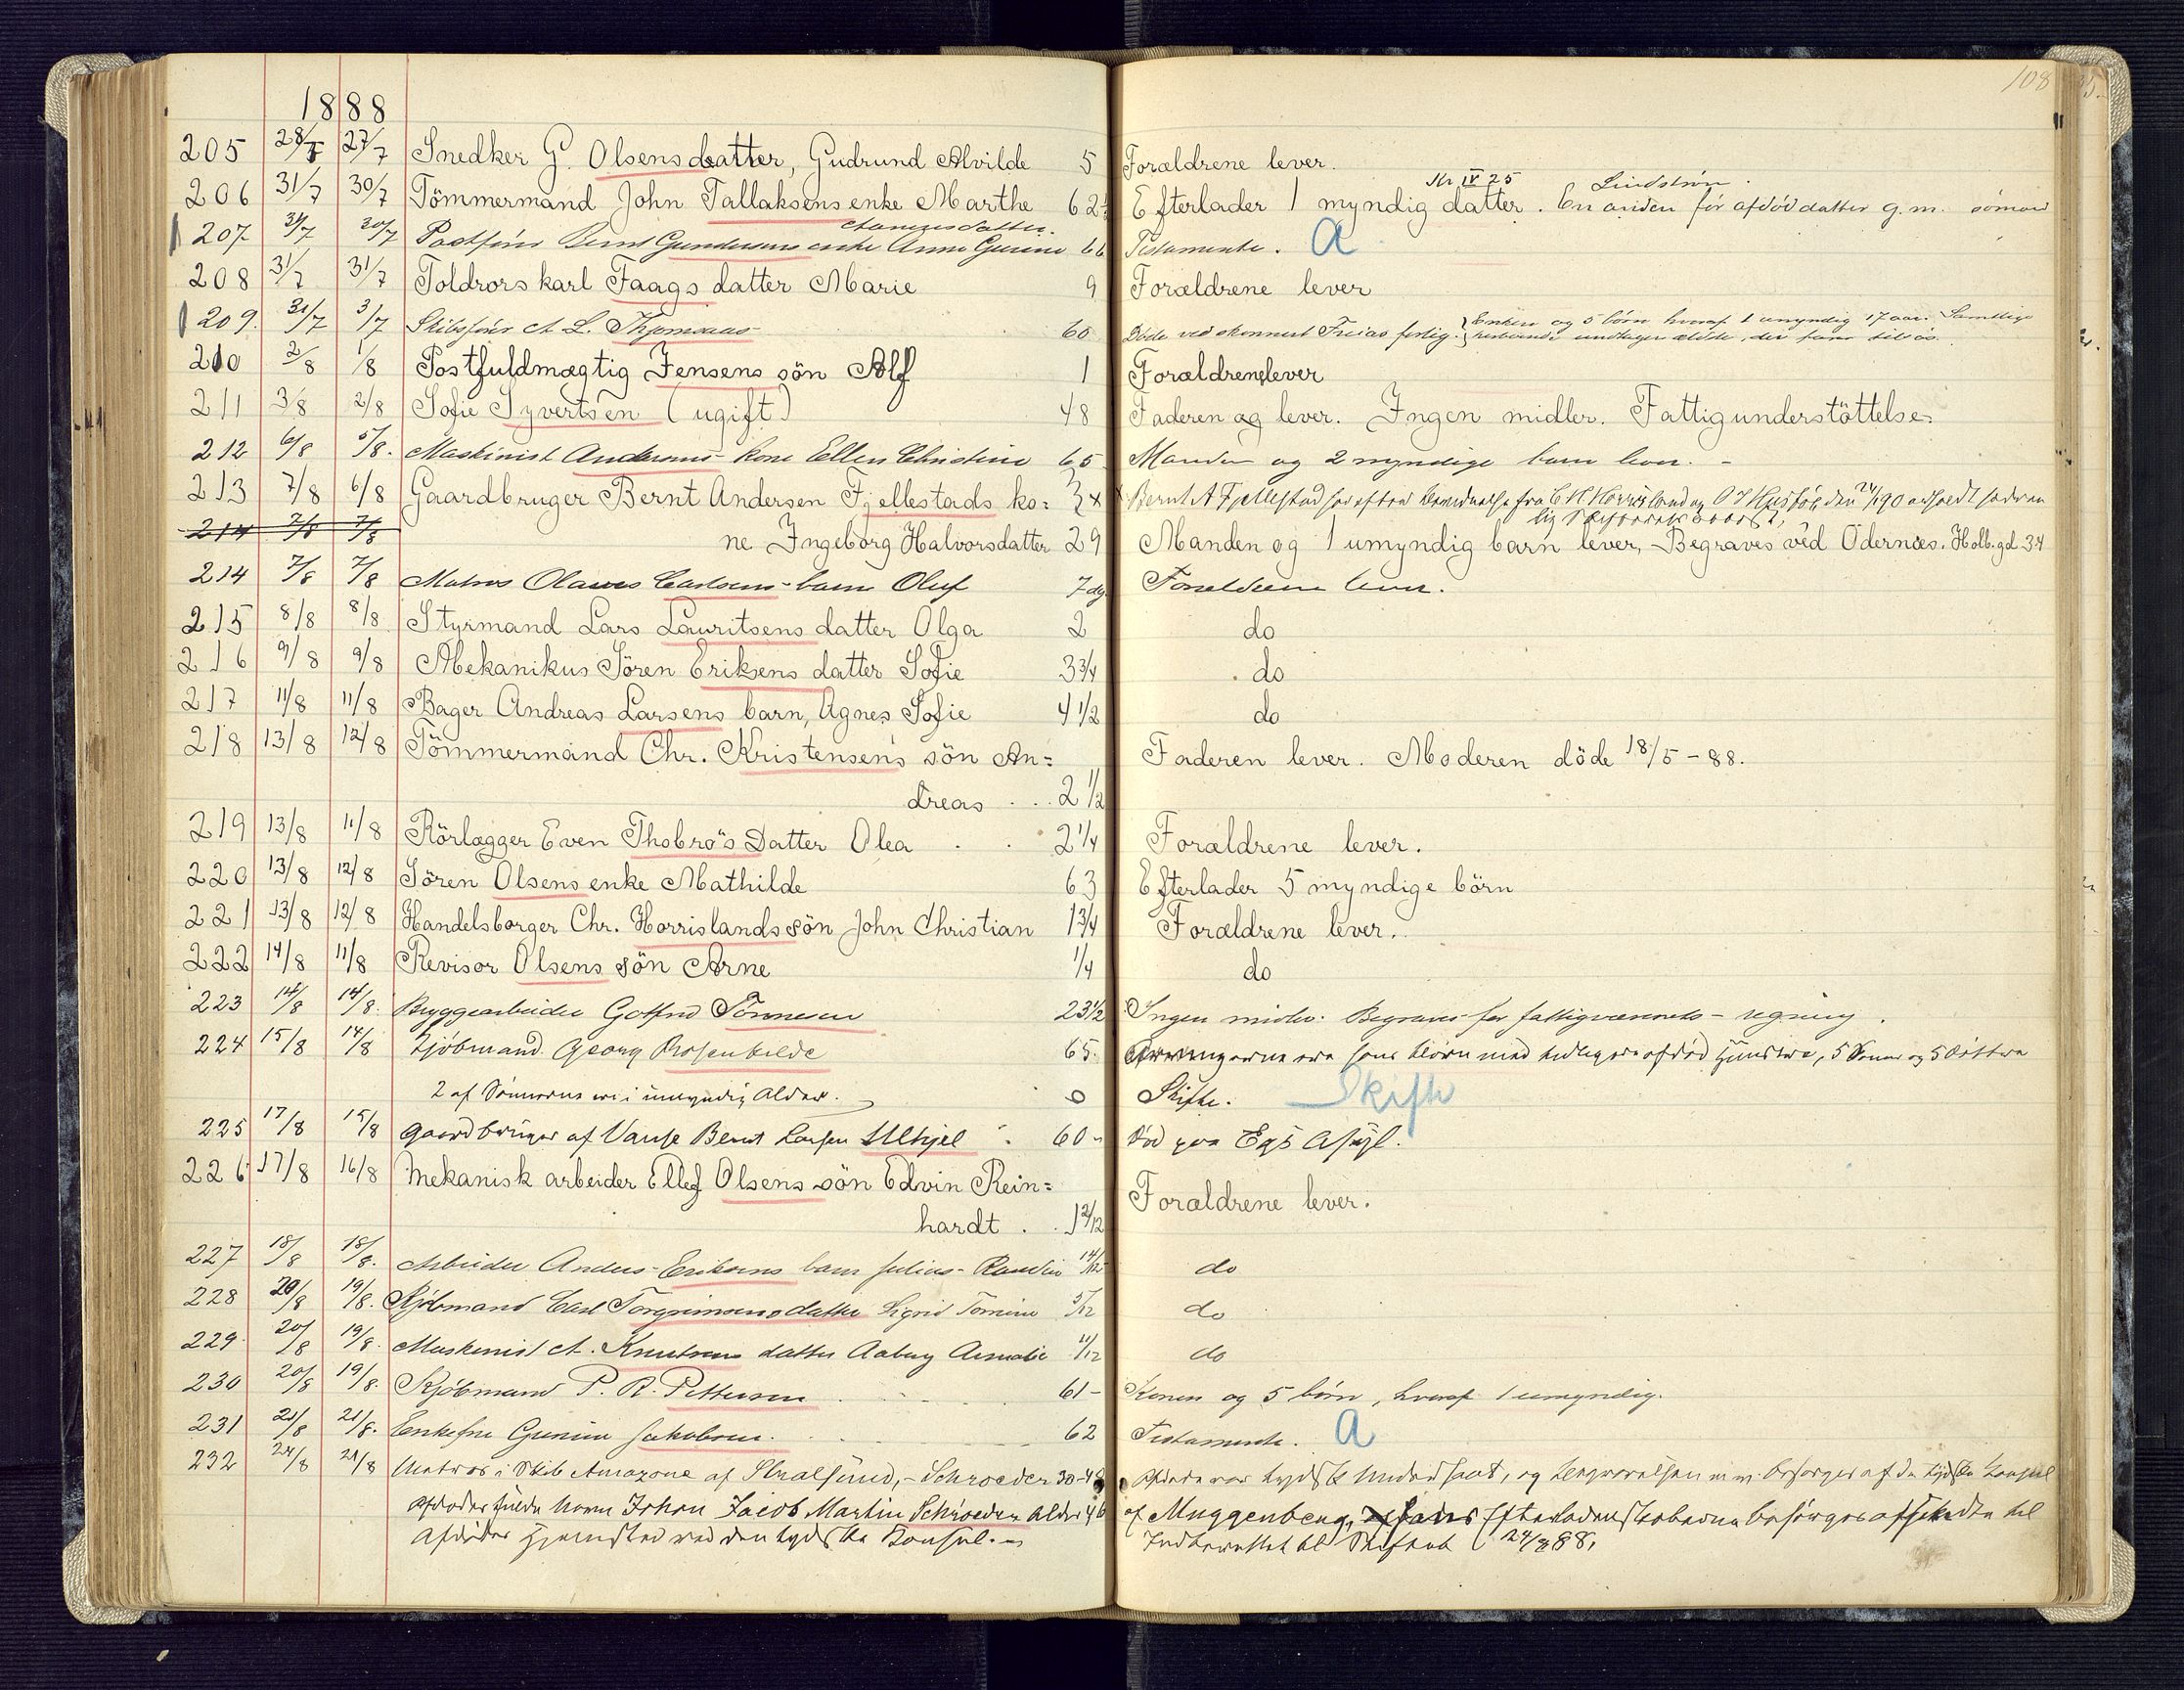 108
1888
205 28/7 27/7 Snedker G. Olsens datter, Gudrund Alvilde 5 Forældrene lever.
Skr IV 25 Lindström.
206 31/7 30/7 Tömmermand John Tallaksens enke Marthe 62½ Efterlader 1 myndig datter. En anden før afdöd datter g.m. sömand
207 31/7 30/7 Postförer Bernt Gundersens enke Anne Gurine 66 Testamente. A
208 31/7 31/7 Toldrorskarl Faags datter Marie 9 Forældrene lever
209. 31/7 3/7 Skibsförer A. L. Thjomaas 60 Döde ved skonnert Freias forlis. Enken og 5 börn hvoraf 1 umyndig 17 aar. Samtlige
herboende undtagen ældste, der farer tilsös.
210 2/8 1/8 Postfuldmægtig Jensens sön Alf 1 Forældrene lever
211 3/8 2/8 Sofie Syvertsen (ugift) 48 Faderen lever. Ingen midler. Fattigunderstöttelse.
212 6/8 5/8. Maskinist Andersens kone Ellen Christine 65 Manden og 2 myndige barn lever. -
213 7/8 6/8 Gaardbruger Bernt Andersen Fjellestads ko= Bernt A Fjellestad har efter fra C H Horrisland og O T den 24/1 90
214 7/8 7/8 ne Ingeborg Halvorsdatter 29 Manden og 1 umyndig barn lever, - Begraves ved Odernæs. Holb. gd 34
214 7/8 7/8 Matros Olaves Carlsens barn Oluf 7 dg. Forældrene lever.
215 8/8 8/8 Styrmand Lars Lauritsens datter Olga 2 do
216 9/8 9/8 Mekanikus Sören Eriksens datter Sofie 3¾ do
217 11/8 11/8 Bager Andreas Larsens barn, Agnes Sofie 4 1/2 do
218 13/8 12/8 Tömmermand Chr. Kristensens sön An= Faderen lever. Moderen döde 18/5 - 88.
dreas . . . 2 1/2
219 13/8 11/8 Rörlægger Even Thobrö's Datter Olea . . 2 1/4 Forældrene lever.
220 13/8 12/8 Sören Olsens enke Mathilde 63 Efterlader 5 myndige börn
221 13/8 12/8 Handelsborger Chr. Horrislands sön John Christian 1¾ Forældrene lever.
222 14/8 11/8 Revisor Olsens sön Arne 1/4 do
223 14/8 14/8. Bryggearbeider Gotfred Tönnesen 23 1/2 Ingen midler. Begraves for fattigvæsenets regning.
224 15/8 14/8 Kjöbmand Georg Rosenkilde 65. Arvingerne ere hans Börn med tidligere afdöd Hustru, 5 Sönner og 5 Döttre
2 af Sönnerne er i umyndig Alder. Skifte. Skifte
225 17/8 15/8 Gaardbruger af Vanse Bernt Larsen Ulhjel 60 - död paa Egs Asyl.
226 17/8 16/8 Mekanisk arbeider Ellef Olsens sön Edvin Rein= Forældrene lever.
hardt . . 1 2/12
227 18/8 18/8. Arbeider Anders Eriksens barn Julius Randin 14/12 do
228 20/8 19/8. Kjöbmand Carl Torgrimsens datter Sigrid Tomine 5/12 do
229 20/8 19/8. Maskinist A. Knutsens datter Aabny Amalie 11/12 do
230 20/8 19/8. Kjöbmand P. R. Pettersen 61 - Konen og 5 börn, hvoraf 1 umyndig.
231 21/8 21/8. Enkefru Gurine Jakobsen. 62 Testamente. A
232 24/8 21/8 Matros i Skib Amazone af Stralsund, - Schroeder 30-40 Afdöde var tydsk Undersaat, og Begravelsen m.v. besörges af den tydske Konsul
Afdödes fulde Navn Johan Jacob Martin Schröeder Alder 46 af Muggenberg, Efterladenskaberne besörges afsendte til
Afdödes Hjemsted ved den tydske Konsul. - Indberettet til Skifteret 24/8 88.